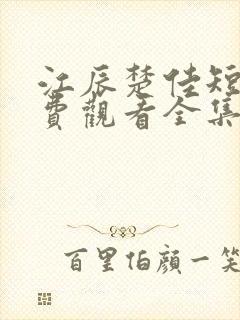 江辰楚佳短
费觀看全集
百里伯顏一笑